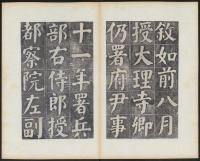 敘如前八月
授大理寺卿
仍署府尹事
十一年署兵
部右侍郎授
都察院左副